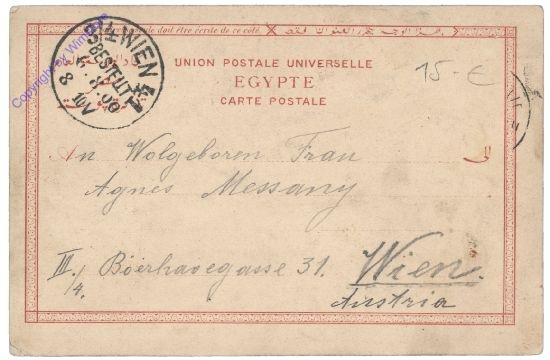 doit être écrite de ce côté.
3/4 WIEN
BESTELLT
UNION POSTALE UNIVERSELLE
EGYPTE
CARTE POSTALE
15.- €
An Wolgeboren Frau
Agnes Messany
III./4. Böerhavegasse 31. Wien.
Austria
Copyright by